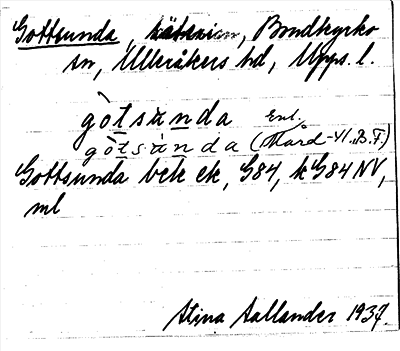 Gottsunda, Bondkyrko
sn, Ulleråkers hd, Upps. l.
gòtsùnda Enl.
gòtsùnda (Mård-41. B.F.)
Gottsunda bek ek, G84, k G84 NV,
ml
Stina Aallander 1937.